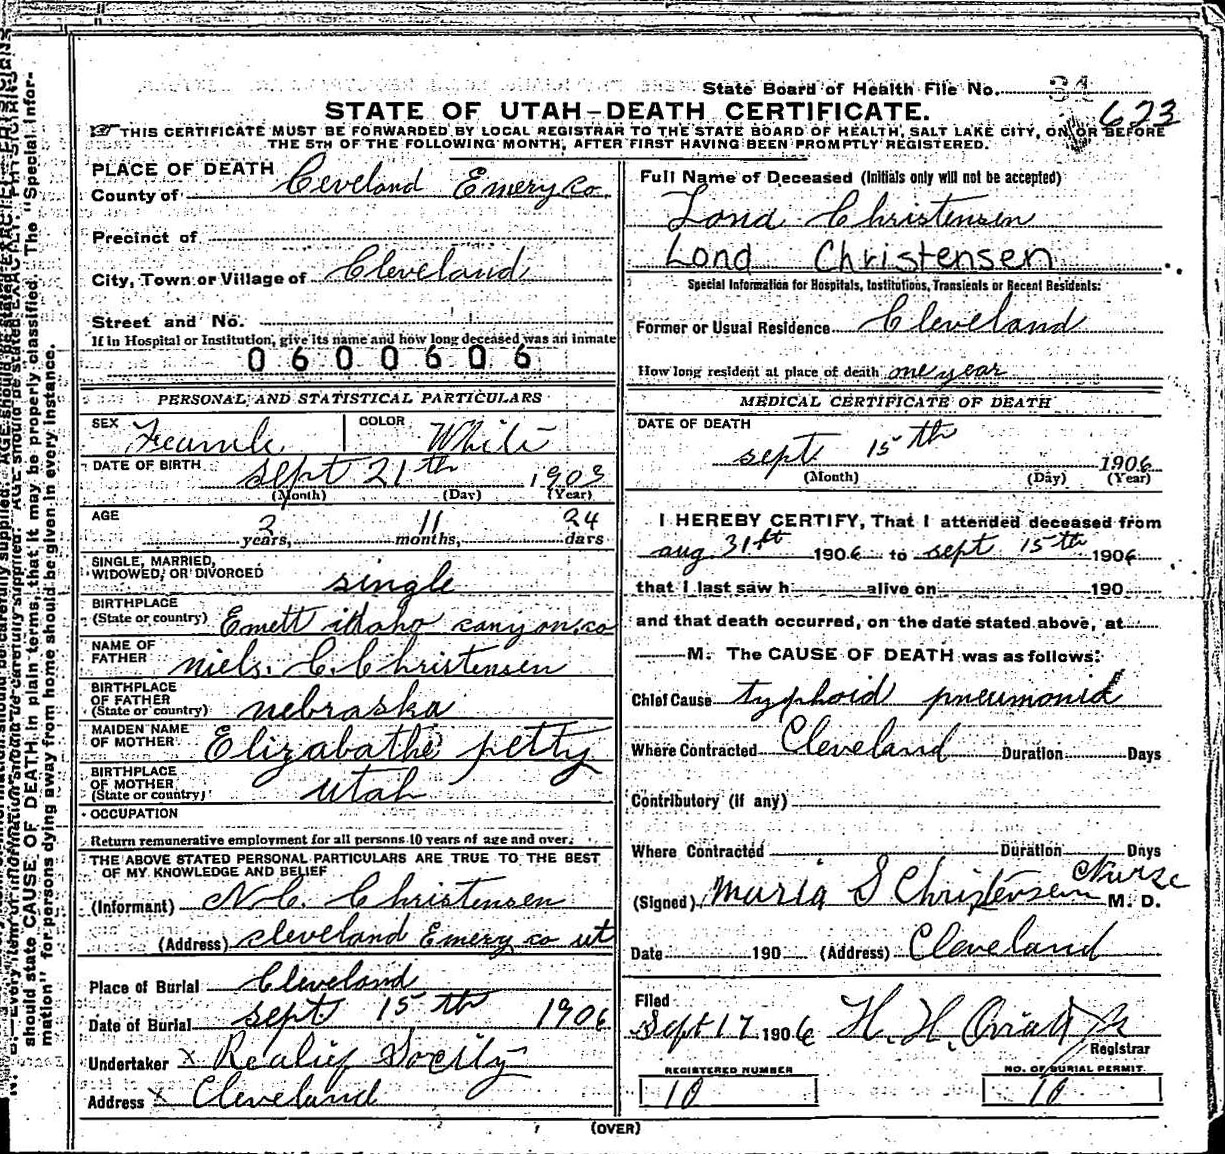 State Board of Health File No. 34
623
STATE OF UTAH—DEATH CERTIFICATE.
THIS CERTIFICATE MUST BE FORWARDED BY LOCAL REGISTRAR TO THE STATE BOARD OF HEALTH, SALT LAKE CITY, ON OR BEFORE
THE 5TH OF THE FOLLOWING MONTH, AFTER FIRST HAVING BEEN PROMPTLY REGISTERED.
PLACE OF DEATH
County of Cleveland Emery co
Precinct of
City, Town or Village of Cleveland
Street and No.
If in Hospital or Institution, give its name and how long deceased was an inmate
0600606
PERSONAL AND STATISTICAL PARTICULARS
SEX Feamle COLOR White
DATE OF BIRTH sept 21th 1903
(Month) (Day) (Year)
AGE 2 years, 11 months, 24 days
SINGLE, MARRIED,
WIDOWED, OR DIVORCED single
BIRTHPLACE
(State or country) Emett idaho canyon.co
NAME OF
FATHER niels. C. Christensen
BIRTHPLACE
OF FATHER
(State or country) nebraska
MAIDEN NAME
OF MOTHER Elizabathe petty
BIRTHPLACE
OF MOTHER
(State or country) utah
OCCUPATION
Return remunerative employment for all persons 10 years of age and over.
THE ABOVE STATED PERSONAL PARTICULARS ARE TRUE TO THE BEST
OF MY KNOWLEDGE AND BELIEF
(Informant) N. C. Christensen
(Address) cleveland Emery co ut
Place of Burial Cleveland
Date of Burial sept 15th 1906
Undertaker x Realief Socity
Address x Cleveland
Full Name of Deceased (Initials only will not be accepted)
Lond Christensen
Lond Christensen
Special Information for Hospitals, Institutions, Transients or Recent Residents:
Former or Usual Residence Cleveland
How long resident at place of death one year
MEDICAL CERTIFICATE OF DEATH
DATE OF DEATH
sept 15th 1906
(Month) (Day) (Year)
I HEREBY CERTIFY, That I attended deceased from
aug 31st 1906 to sept 15th 1906
that I last saw h alive on 190
and that death occurred, on the date stated above, at
M. The CAUSE OF DEATH was as follows:
Chief Cause typhoid pneumonia
Where Contracted Cleveland Duration Days
Contributory (if any)
Where Contracted Duration Days
(Signed) Maria S Christensen Nurse M. D.
Date 190 (Address) Cleveland
Filed
Sept 17 1906 H. H. Oviatt Jr
Registrar
REGISTERED NUMBER
10
NO. OF BURIAL PERMIT
10
(OVER)
should state CAUSE OF DEATH in plain terms, that it may be properly classified. The "Special Infor-
mation" for persons dying away from home should be given in every instance.